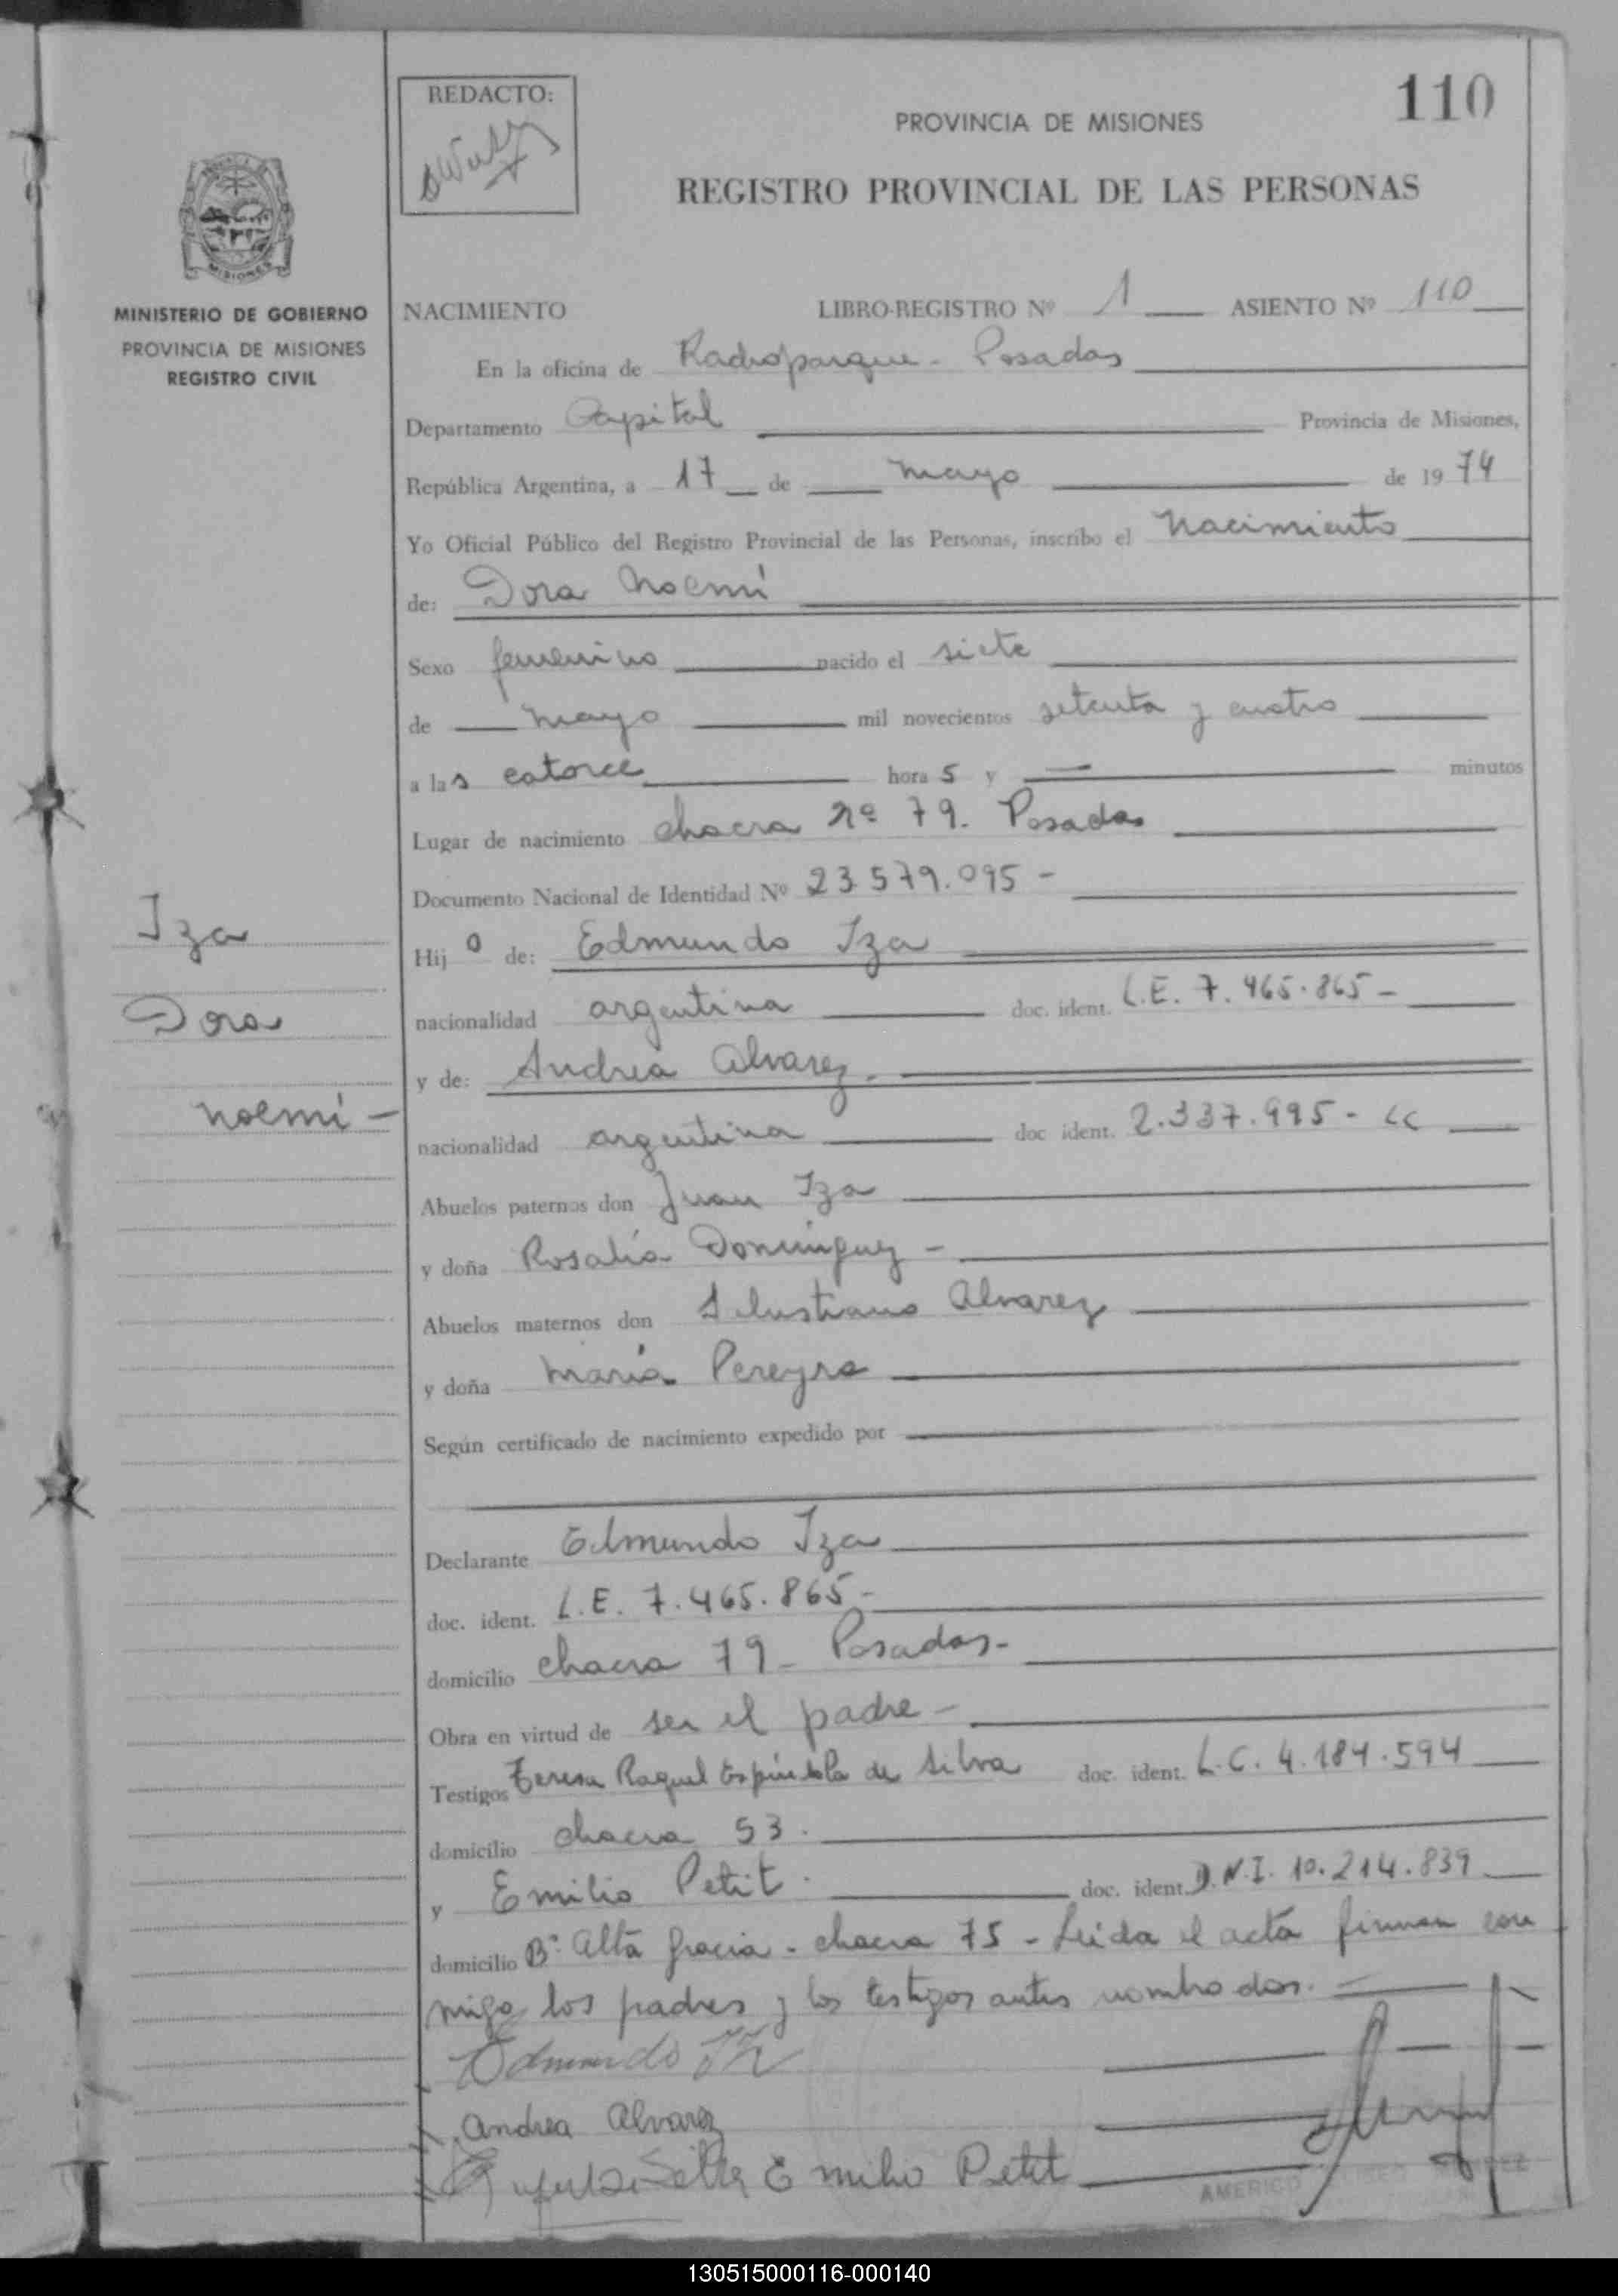 110
REDACTO:
PROVINCIA DE MISIONES
REGISTRO PROVINCIAL DE LAS PERSONAS
MISIONES
MINISTERIO DE GOBIERNO
PROVINCIA DE MISIONES
REGISTRO CIVIL
NACIMIENTO LIBRO-REGISTRO Nº 1 ASIENTO Nº 110
En la oficina de Radioparque - Posadas
Departamento Capital Provincia de Misiones,
República Argentina, a 17 de mayo de 1974
Yo Oficial Público del Registro Provincial de las Personas, inscribo el Nacimiento
de: Dora Noemí
Sexo femenino nacido el siete
de mayo mil novecientos setenta y cuatro
a las catorce horas y — minutos
Lugar de nacimiento chacra nº 79. Posadas
Documento Nacional de Identidad Nº 23.579.095 -
Iza
Dora
Noemí -
Hijo de: Edmundo Iza
nacionalidad argentina doc. ident. L.E. 7.465.865 -
y de: Andrea Alvarez.
nacionalidad argentina doc ident. 2.337.995 - LC
Abuelos paternos don Juan Iza
y doña Rosalía Dominguez -
Abuelos maternos don Alvarez
y doña María Pereyra
Según certificado de nacimiento expedido por
Declarante Edmundo Iza
doc. ident. L.E. 7.465.865 -
domicilio chacra 79 - Posadas -
Obra en virtud de ser el padre -
Testigos Teresa Raquel Espíndola de Silva doc. ident. L.C. 4.184.594
domicilio chacra 53.
y Emilio Petit. doc. ident. D.N.I. 10.214.839
domicilio Bº Alta gracia - chacra 75 - Leida el acta firman con
migo los padres y los testigos antes nombrados.
Edmundo Iza
Andrea Alvarez
Emilio Petit
AMERICO
130515000116-000140